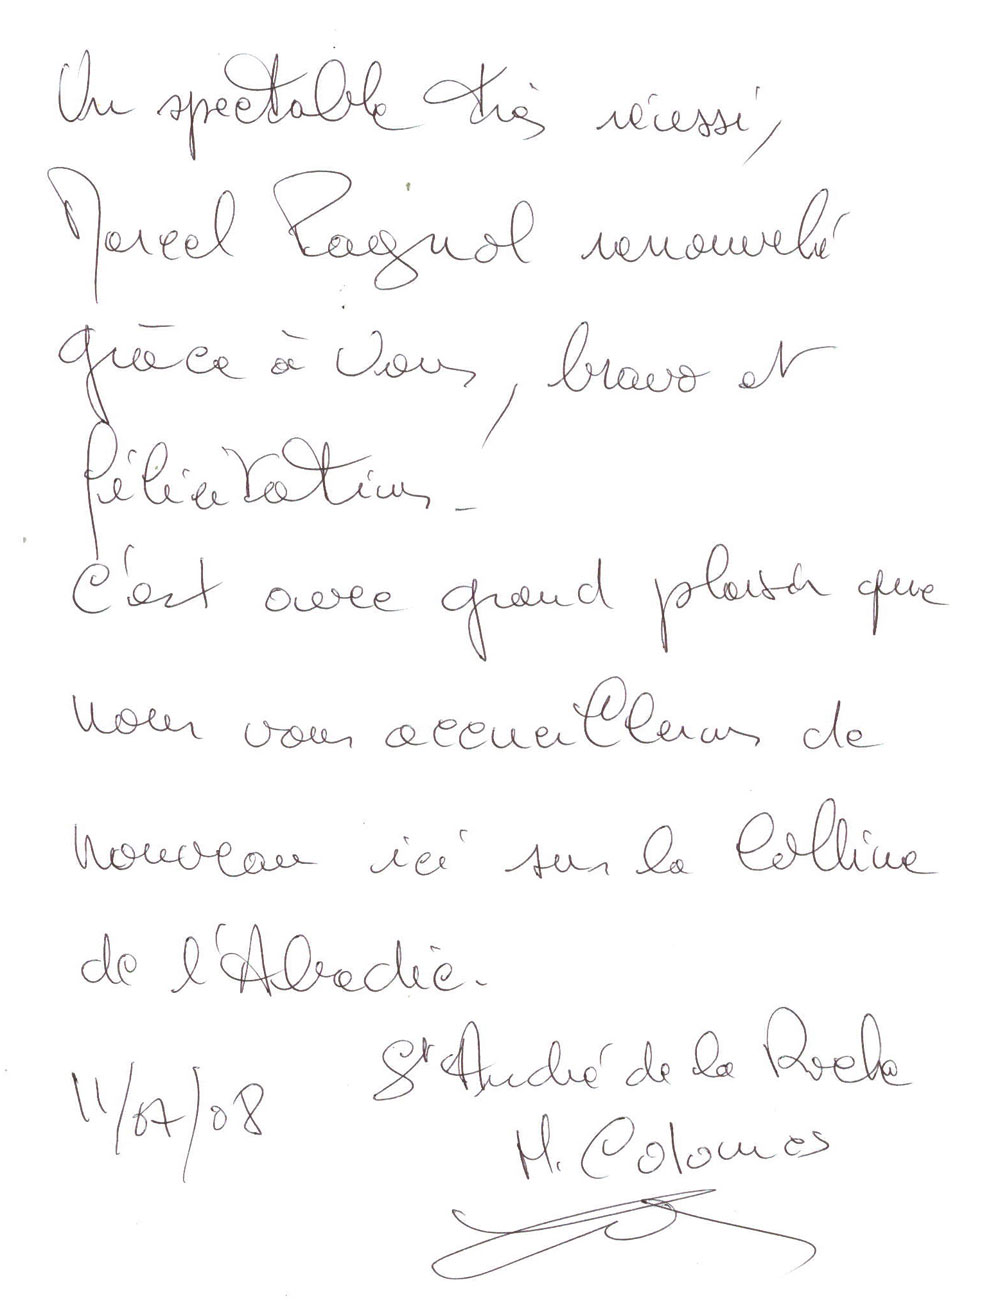 Un spectable très réussi,
Marcel Pagnol renouvelé
grâce à vous, bravo et
félicitations -
C'est avec grand plaisir que
nous vous accueillerons de
nouveau ici sur la Colline
de l'Abadie.
St André de la Roche
11/07/08
M. Colomas